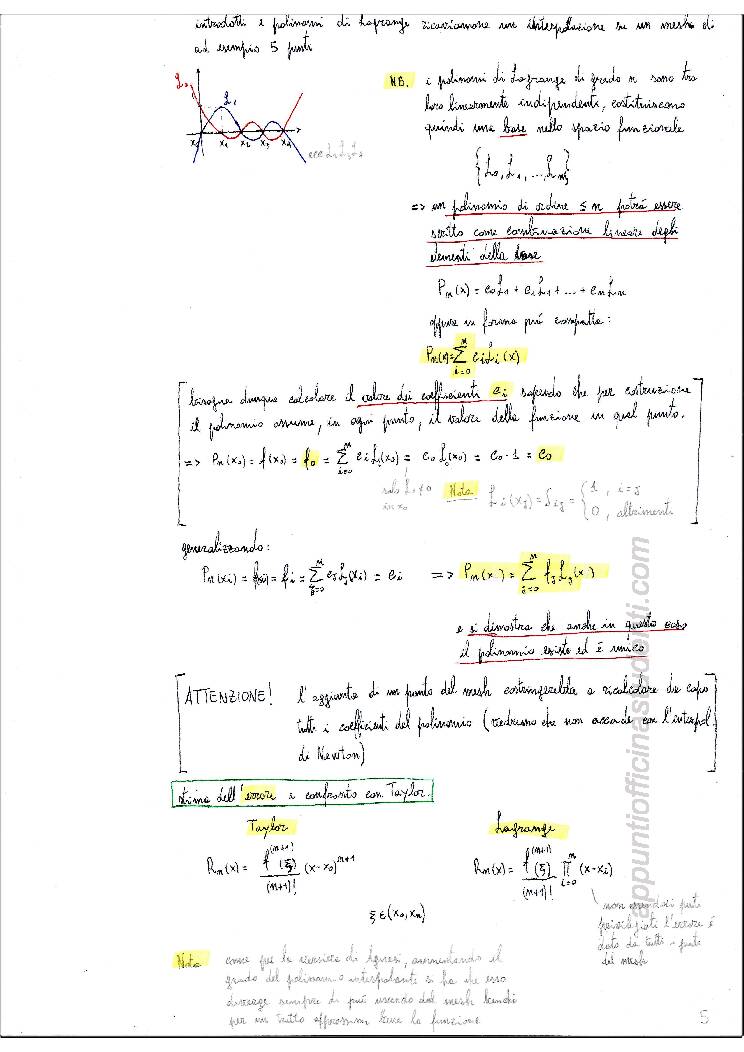 introdotti i polinomi di Lagrange ricaviamone un interpolazione su un mesh di
ad esempio 5 punti
NB. i polinomi di Lagrange di grado n sono tra
loro linearmente indipendenti, costituiscono
quindi una base nello spazio funzionale
{L0, L1, ..., Ln}
=> un polinomio di ordine ≤ n potrà essere
scritto come combinazione lineare degli
elementi della base
Pn(x) = c0L1 + c1L1 + ... + cnLn
oppure in forma più compatta:
Pn(x) = Σ i=0 n ciLi(x)
L0 L1
x0 x1 x2 x3 x4 x
bisogna dunque calcolare il valore dei coefficienti ci sapendo che per costruzione
il polinomio assume, in ogni punto, il valore della funzione in quel punto.
=> Pn(x0) = f(x0) = f0 = Σ i=0 n ciLi(x0) = c0L0(x0) = c0·1 = c0
solo L0≠0
in x0
Nota Li(xj) = δij = { 1, i=j
0, altrimenti
generalizzando:
Pn(xi) = f(xi) = fi = Σ j=0 n cjLj(xi) = ci => Pn(x) = Σ j=0 n fjLj(x)
e si dimostra che anche in questo caso
il polinomio esiste ed è unico
ATTENZIONE! l'aggiunta di un punto del mesh costringerebbe a ricalcolare da capo
tutti i coefficienti del polinomio (vedremo che non accade con l'interpol.
di Newton)
stima dell'errore e confronto con Taylor.
Taylor Lagrange
Rn(x) = f(n+1)(ξ)/(n+1)! (x-x0)^n+1 Rn(x) = f(n+1)(ξ)/(n+1)! Π i=0 n (x-xi)
ξ ∈ (x0, xn)
non essendoci punti
privilegiati l'errore è
dato da tutti i punti
del mesh
Nota come per la versiera di Agnesi, aumentando il
grado del polinomio interpolante si ha che esso
diverge sempre di più uscendo dal mesh
per un tratto approssimi bene la funzione
appuntiofficinastudenti.com
5